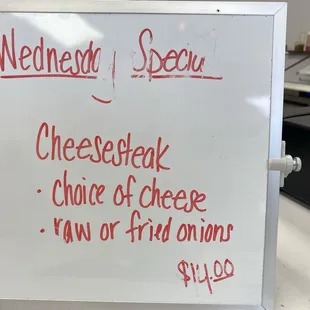 Wednesday Special
Cheesesteak
• choice of cheese
• raw or fried onions
$14.00